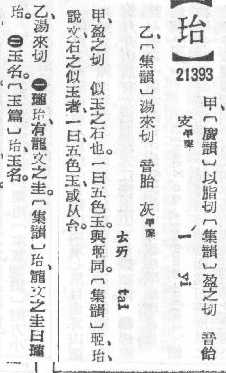 【珆】
21393
甲〔廣韻〕以脂切〔集韻〕盈之切 音飴
支平聲 ㄧ yi
乙〔集韻〕湯來切 音胎 灰平聲
ㄊㄞ tai
甲、盈之切 似玉之石也。一曰五色玉。與同。〔集韻〕、珆、
說文石之似玉者一曰五色玉或从台。
乙、湯來切 ㊀瓏珆有龍文之圭。〔集韻〕珆、龍文之圭曰瓏
珆。㊁玉名。〔玉篇〕珆、玉名。